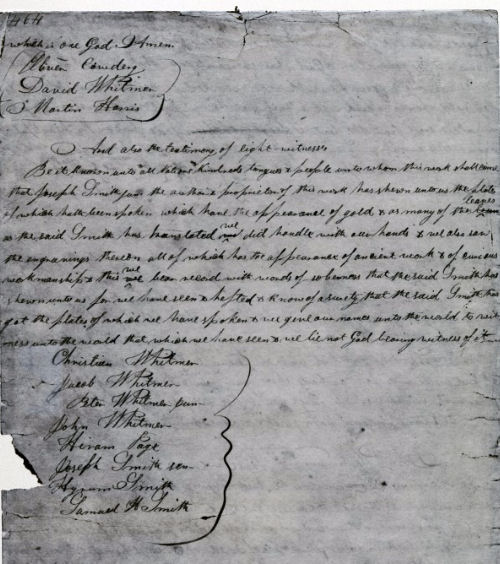 464
which is one God Amen
Oliver Cowdery
David Whitmer
Martin Harris
And also the testimony of eight witnesses
Be it known unto all nations kindreds tongues & people unto whom this work shall come
that Joseph Smith jun the author & proprietor of this work has shewn unto us the plates
leaves
of which hath been spoken which have the appearance of gold & as many of the
as the said Smith has translated we did handle with our hands & we also saw
the engravings thereon all of which has the appearance of ancient work & of curious
workmanship & this we bear record with words of soberness that the said Smith has
shewn unto us for we have seen & hefted & know of a surety that the said Smith has
got the plates of which we have spoken & we give our names unto the world to wit
ness unto the world that which we have seen & we lie not God bearing witness of it
Christian Whitmer
Jacob Whitmer
Peter Whitmer jun
John Whitmer
Hiram Page
Joseph Smith sen
Hyrum Smith
Samuel H Smith